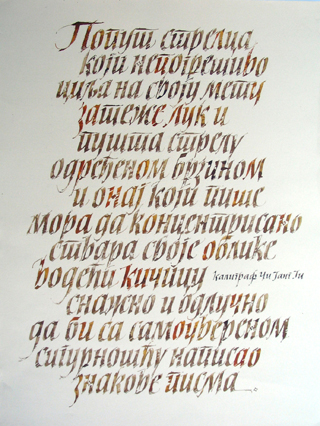 Попут стрелца
који непогрешиво
циља на своју мету
затеже лук и
пушта стрелу
одређеном брзином
и онај који пише
мора да концентрисано
ствара своје облике
водећи кичицу
калиграф Чи Јанг Ји
снажно и одлучно
да би са самоуверсном
сигурношћу написао
знакове писма